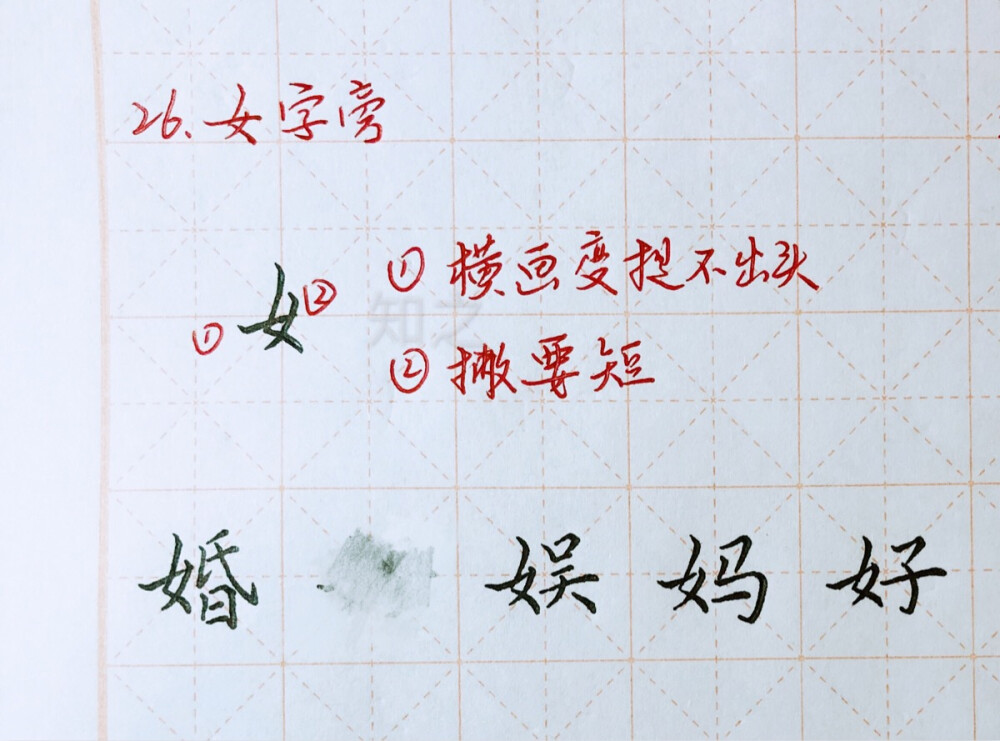 26、女字旁
① 横画变提不出头
① 女 ②
知之
② 撇要短
婚 娱 妈 好